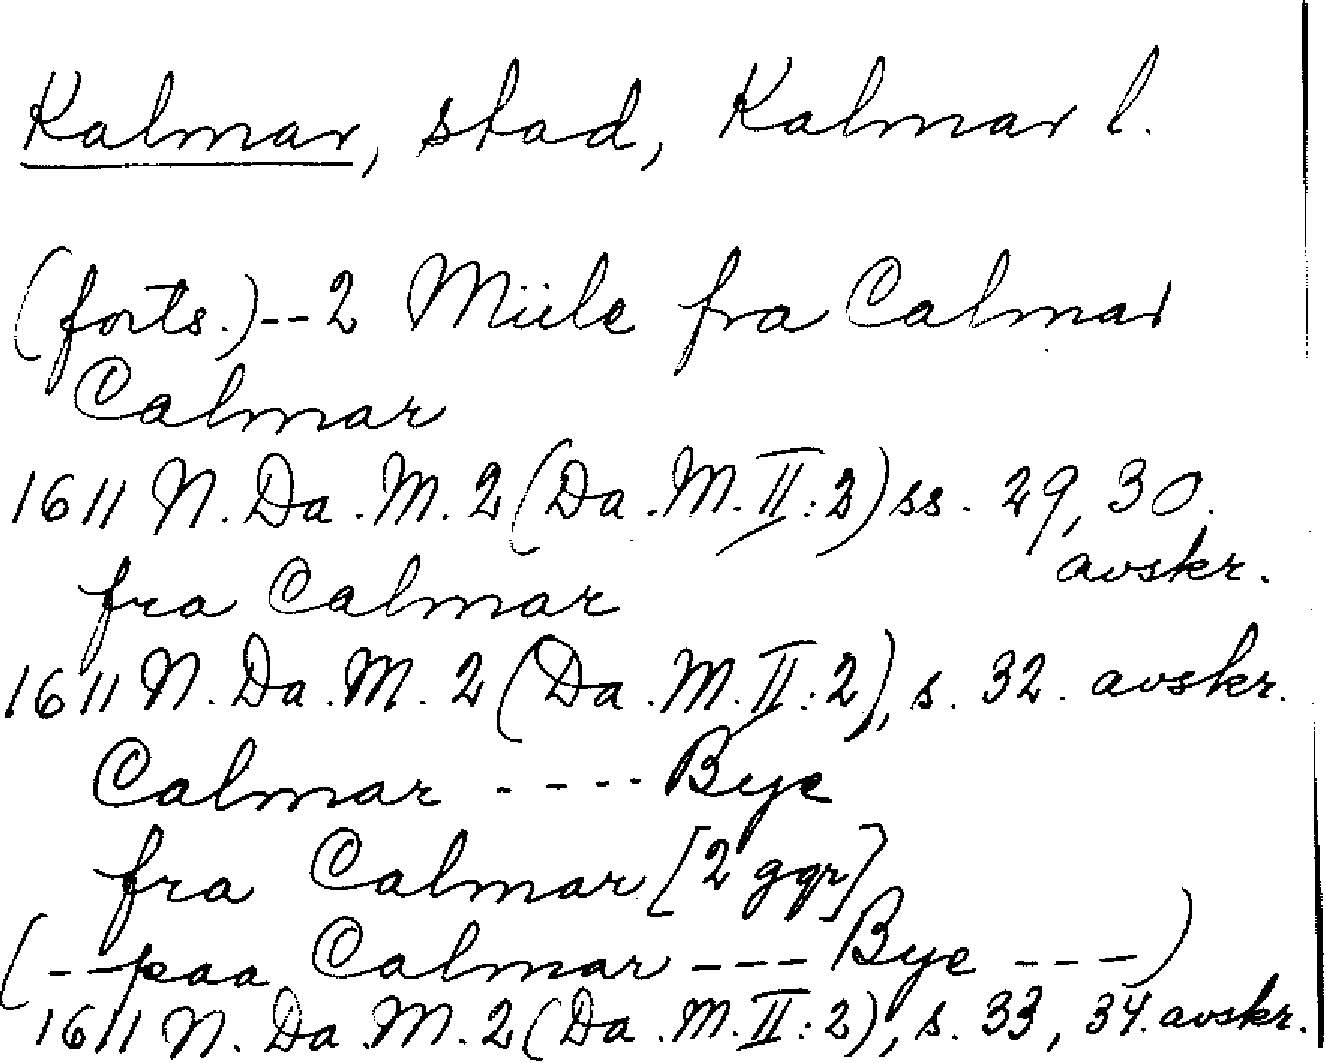 Kalmar, stad, Kalmar l.
(forts.)--2 Miile fra Calmar
Calmar
1611 N. Da. M. 2 (Da. M. II:2) ss. 29, 30.
avskr.
fra Calmar
1611 N. Da. M. 2 (Da. M. II:2), s. 32. avskr.
Calmar ---- Bye
fra Calmar [2 ggr]
(--paa Calmar --- Bye ---)
1611 N. Da. M. 2 (Da. M. II:2), s. 33, 34. avskr.